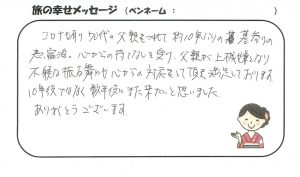 旅の幸せメッセージ（ペンネーム：　　　　）
コロナも有り 90代の父親をつれて約10年ぶりの墓参りの
為宿泊。心からの持てなしを受け、父親が上機嫌となり
不躾な振る舞にも心からの対応をして頂き満足しております。
10年後ではなく数年後にまた来たいと思いました。
ありがとうございます。